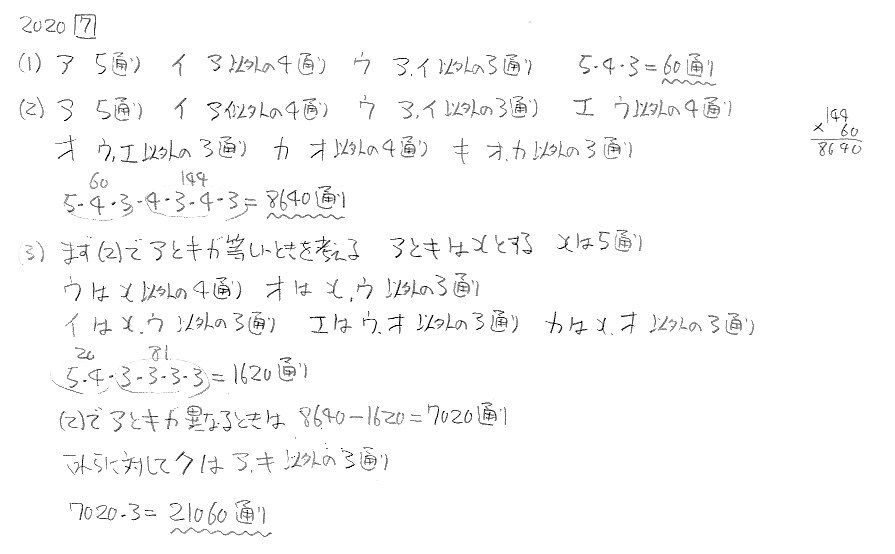 2020 7
(1) ア 5通り イ ア以外の4通り ウ ア,イ以外の3通り 5・4・3=60通り
(2) ア 5通り イ ア以外の4通り ウ ア,イ以外の3通り エ ウ以外の4通り
144
×60
8640
オ ウ,エ以外の3通り カ オ以外の4通り キ オ,カ以外の3通り
60 144
5・4・3・4・3・4・3=8640通り
(3) まず(2)でアとキが等しいときを考える アとキはxとする xは5通り
ウはx以外の4通り オはx,ウ以外の3通り
イはx,ウ以外の3通り エはウ,オ以外の3通り カはx,オ以外の3通り
20 81
5・4・3・3・3・3=1620通り
(2)でアとキが異なるときは 8640-1620=7020通り
これらに対してクはア,キ以外の3通り
7020・3=21060通り